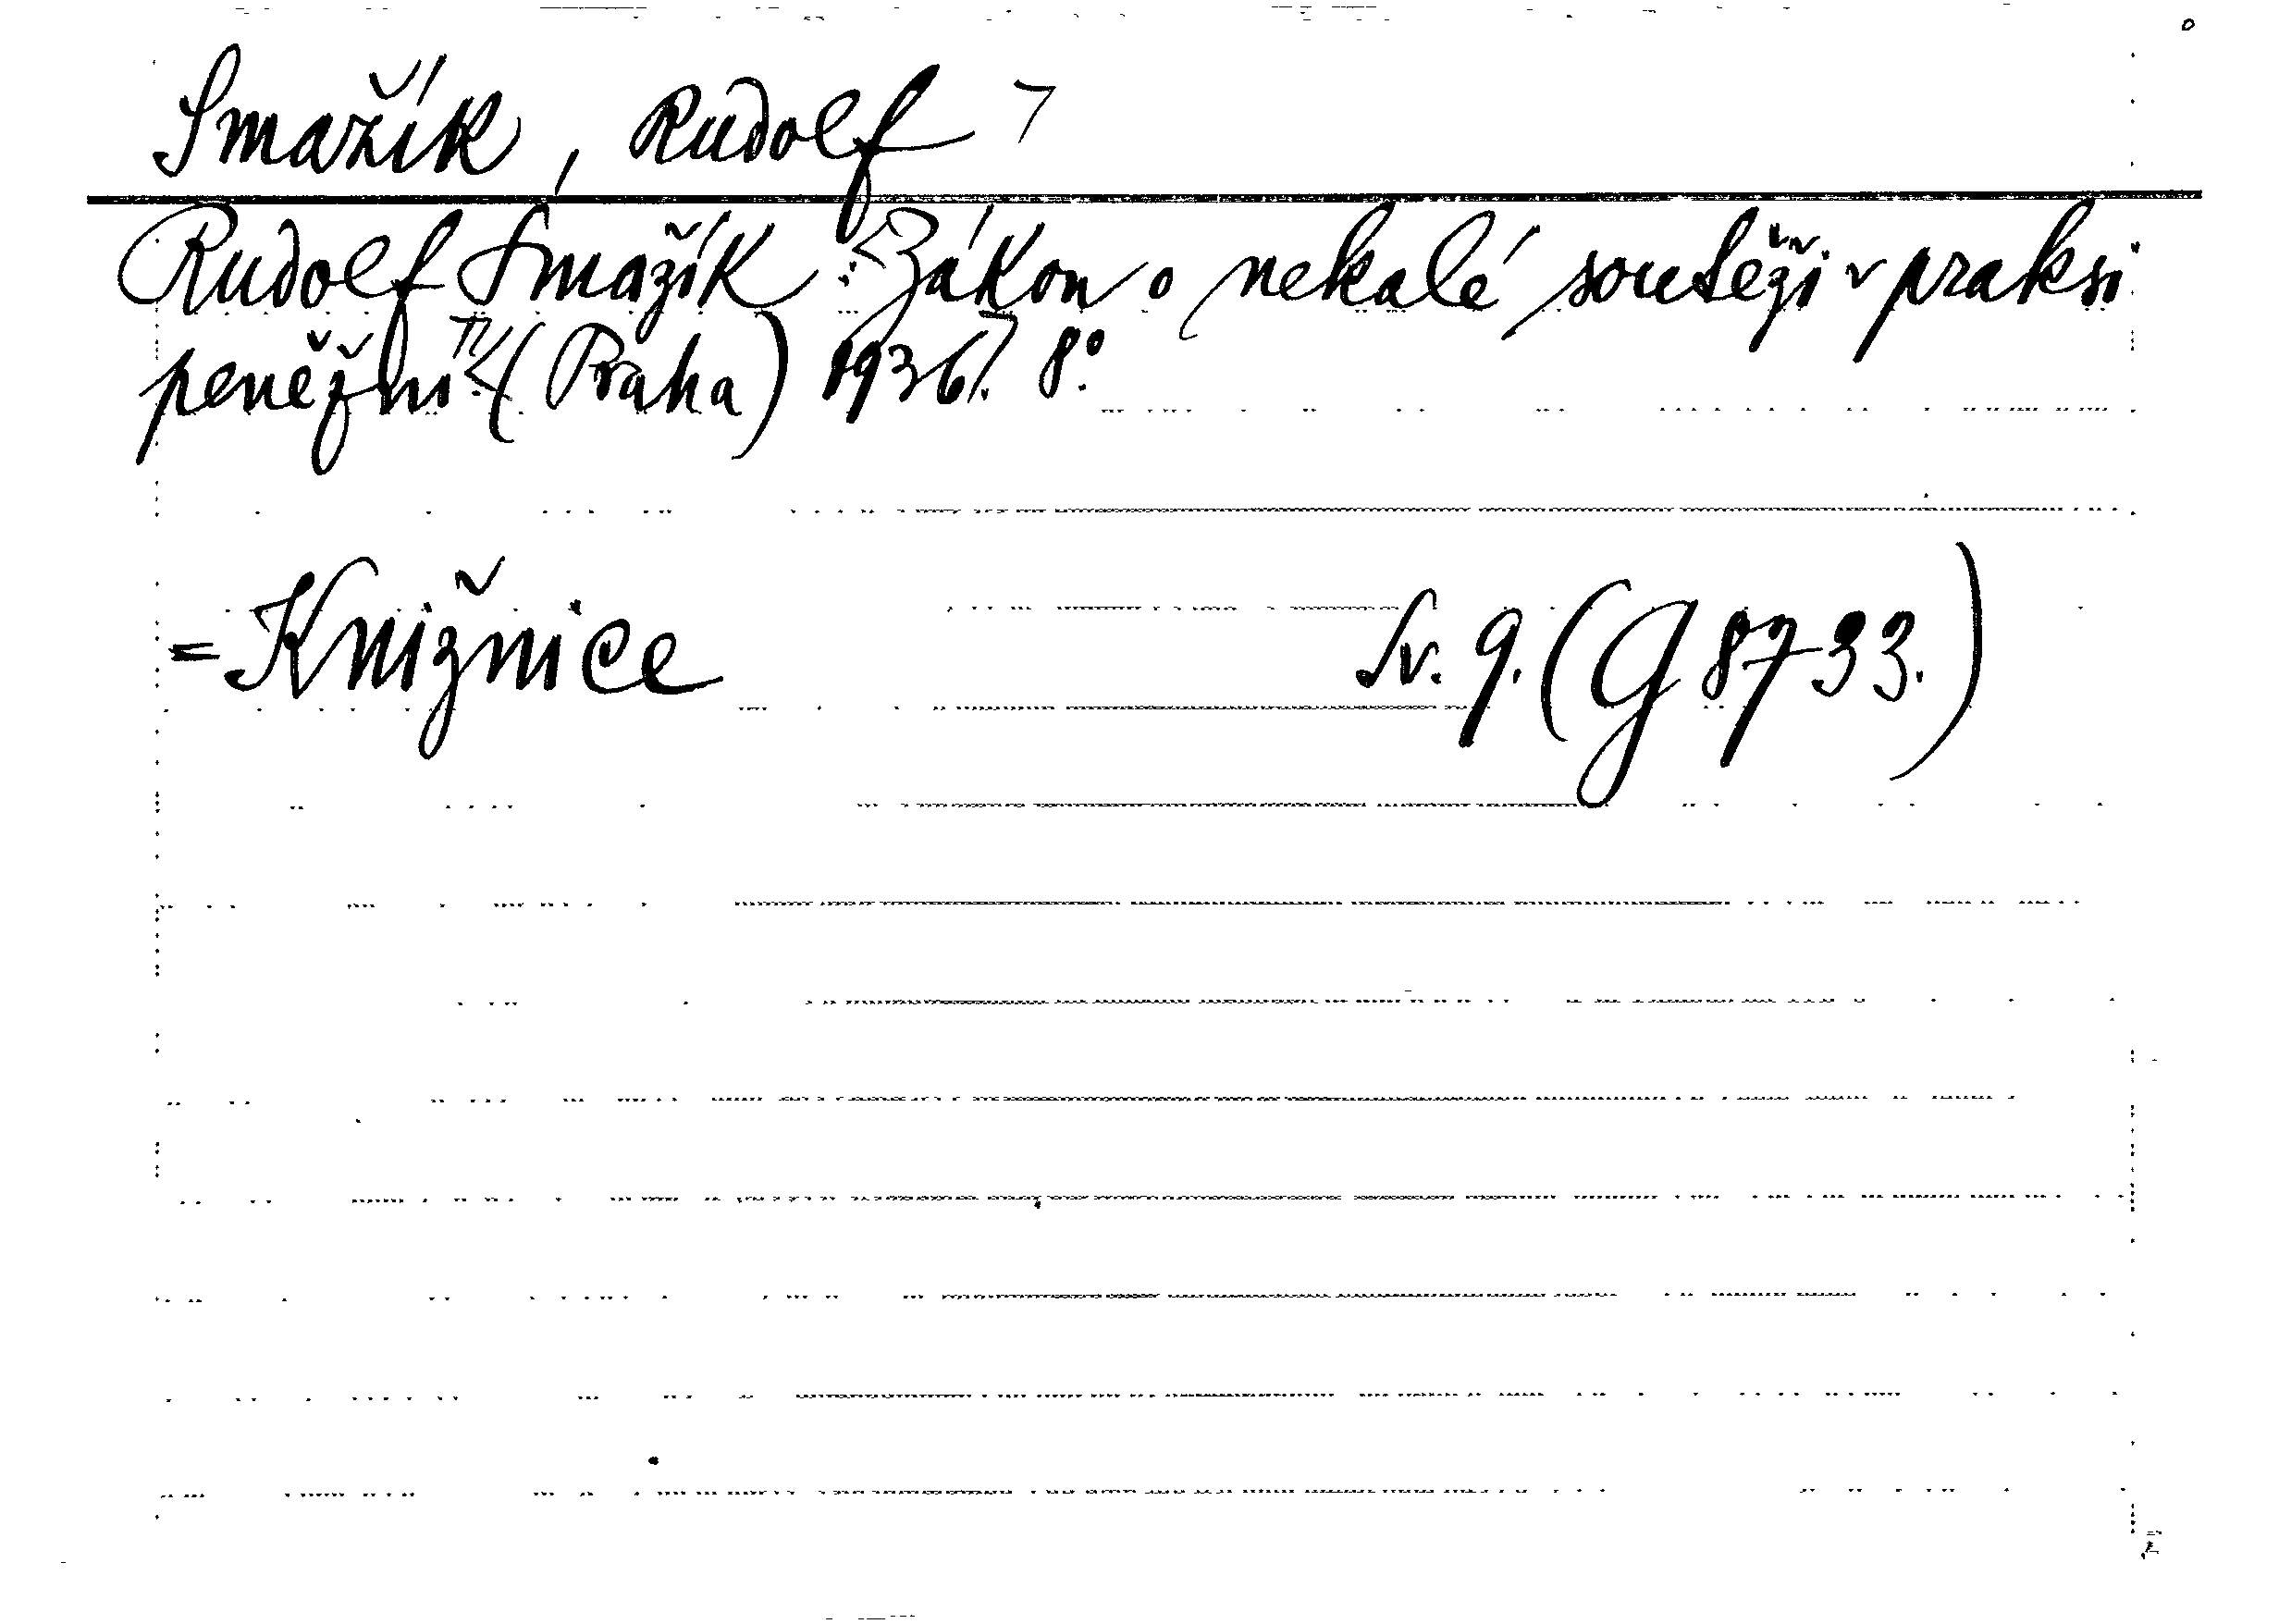 Smažík, Rudolf
Rudolf Smažík: Zákon o nekalé soutěži v praksi
peněžní. (Praha) 1936. 8°.
=Knižnice Sv. 9. (G 8733.)